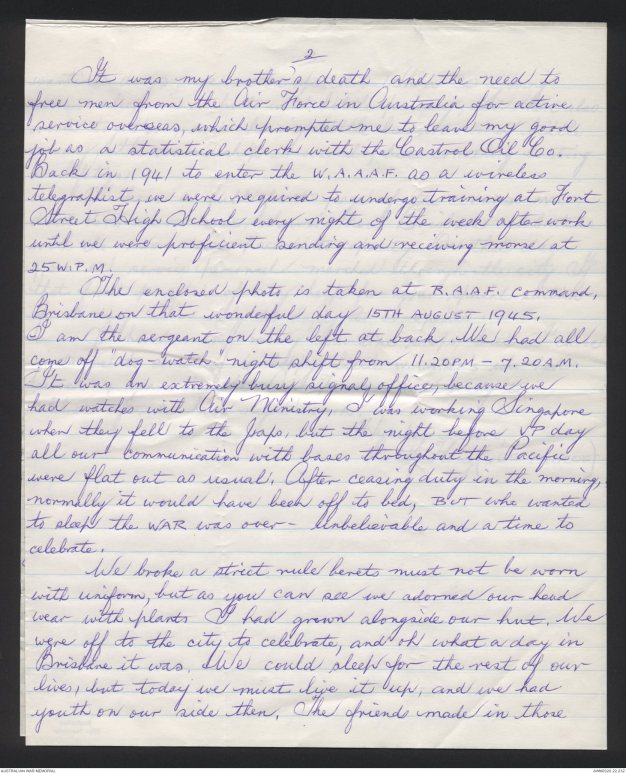 2
It was my brother's death and the need to
free men from the Air Force in Australia for active
service overseas, which prompted me to leave my good
job as a statistical clerk with the Castrol Oil Co.
Back in 1941 to enter the W.A.A.A.F. as a wireless
telegraphist, we were required to undergo training at Fort
Street High School every night of the week after work
until we were proficient sending and receiving morse at
25 W.P.M.
The enclosed photo is taken at R.A.A.F. command,
Brisbane on that wonderful day 15TH AUGUST 1945.
I am the sergeant on the left at back. We had all
come off "dog-watch" night shift from 11.20PM - 7.20A.M.
It was an extremely busy signals office, because we
had watches with Air Ministry, I was working Singapore
when they fell to the Japs, but the night before VP day
all our communication with bases throughout the Pacific
were flat out as usual. After ceasing duty in the morning,
normally it would have been off to bed, BUT who wanted
to sleep the WAR was over - unbelievable and a time to
celebrate.
We broke a strict rule berets must not be worn
with uniform, but as you can see we adorned our head
wear with plants I had grown alongside our hut. We
were off to the city to celebrate, and oh what a day in
Brisbane it was. We could sleep for the rest of our
lives, but today we must live it up, and we had
youth on our side then. The friends made in those
AUSTRALIAN WAR MEMORIAL